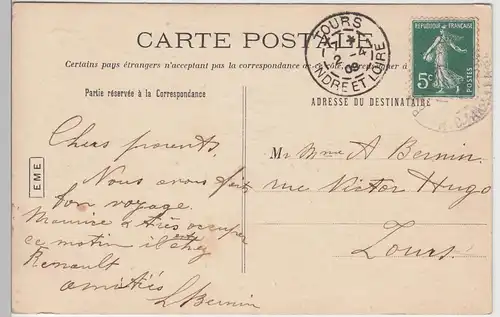 CARTE POSTALE
Certains pays étrangers n'acceptant pas la correspondance de ce côté, se
Partie réservée à la Correspondance
ADRESSE DU DESTINATAIRE
TOURS
2-4
09
INDRE ET LOIRE
REPUBLIQUE FRANÇAISE
5c
POSTES
EME
Chers parents,
Nous avons fait
bon voyage.
Maurice a très occuper
ce matin il est chez
Renault
amitiés
L Bernin
M. Mme A Bernin.
rue Victor Hugo
Tours.